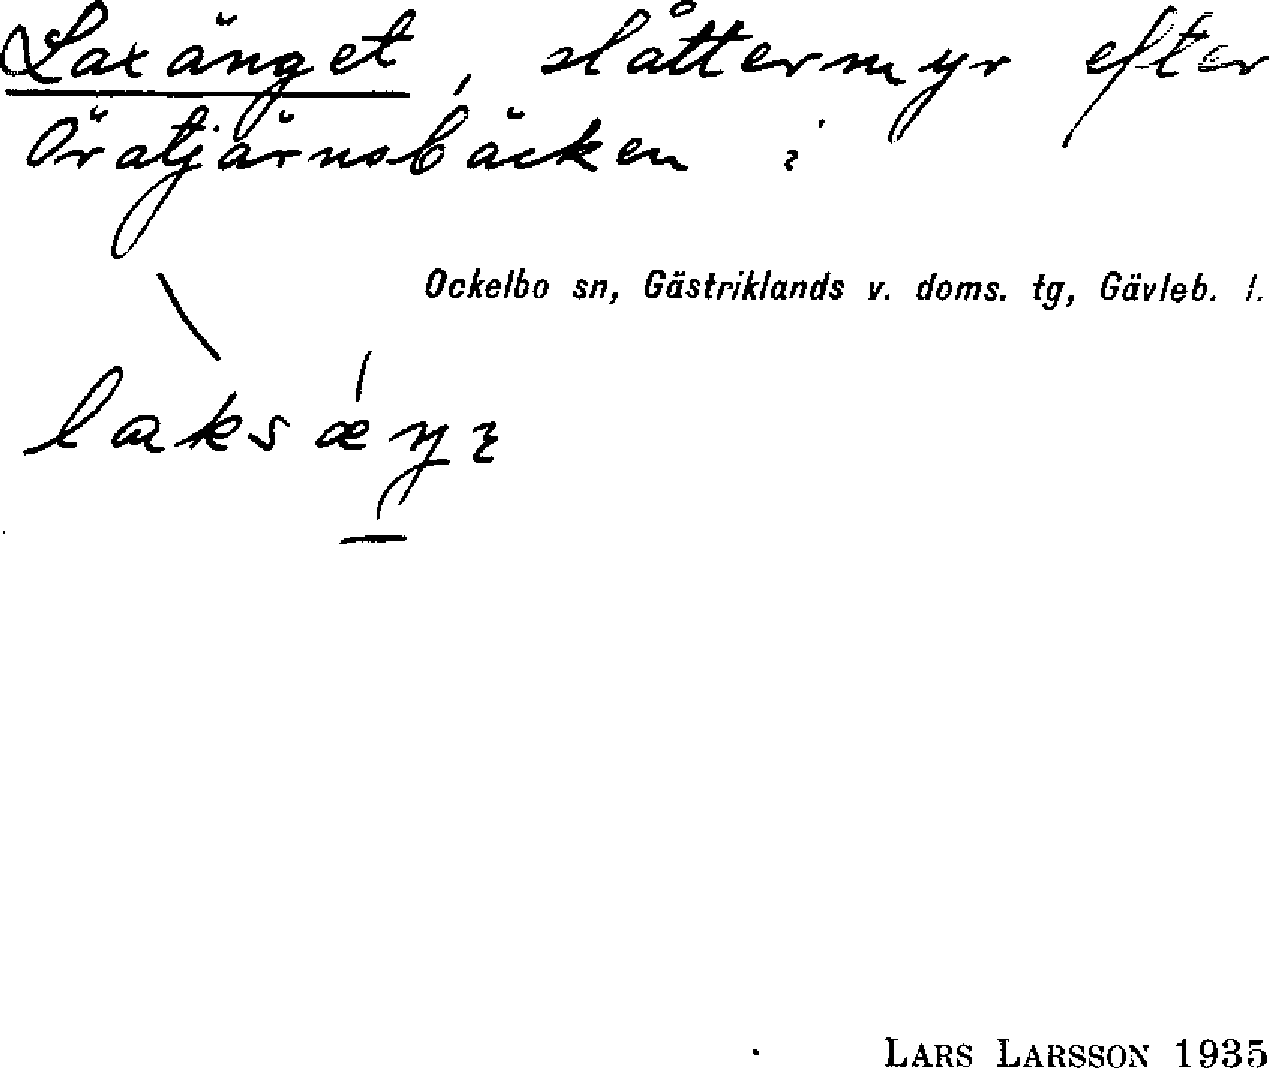 Laxänget, slåttermyr efter
Öratjärnsbäcken i
Ockelbo sn, Gästriklands v. doms. tg, Gävleb. l.
LARS LARSSON 1935